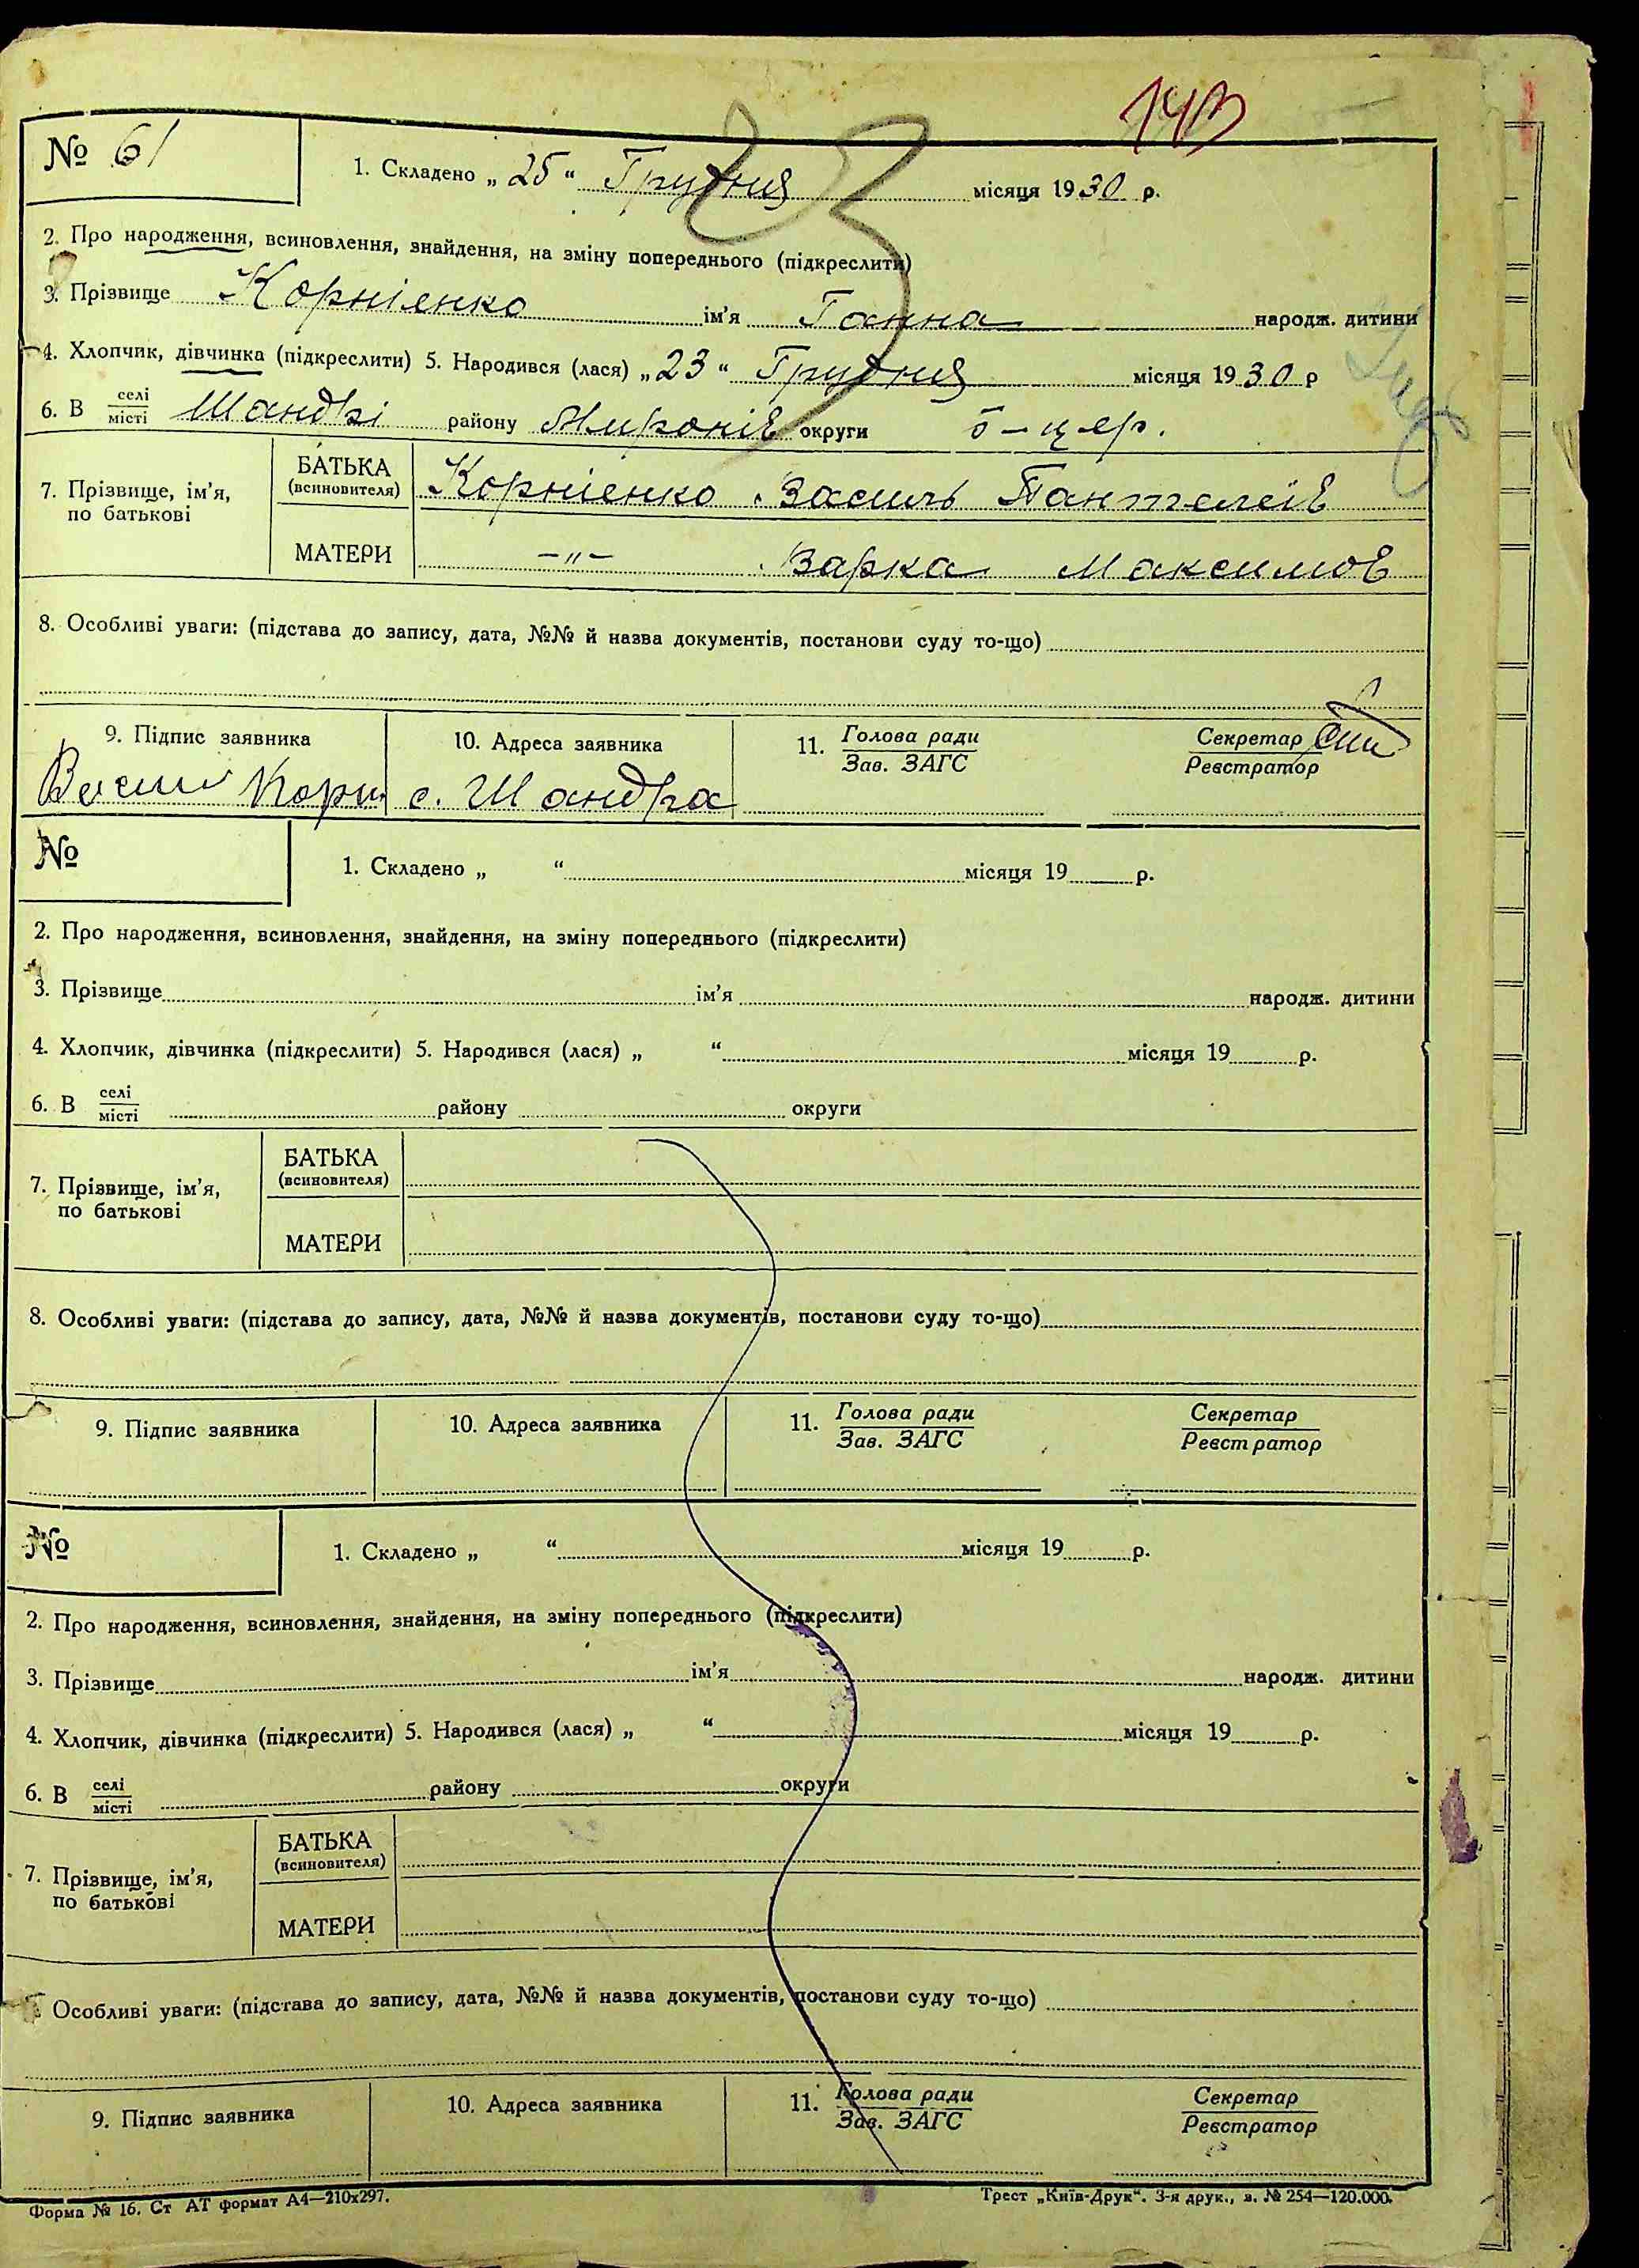 143
№ 61
1. Складено „ 25 “ Грудня місяця 1930 р.
2. Про народження, всиновлення, знайдення, на зміну попереднього (підкреслити)
3. Прізвище Корнієнко ім’я Ганна народж. дитини
4. Хлопчик, дівчинка (підкреслити) 5. Народився (лася) „ 23 “ Грудня місяця 1930 р
6. В селі/місті Шандрі району Миронів округи б-цер.
7. Прізвище, ім’я, по батькові
БАТЬКА (всиновителя) Корнієнко Василь Пантелеїв
МАТЕРИ —„— Варка Максимов
8. Особливі уваги: (підстава до запису, дата, №№ й назва документів, постанови суду то-що)
9. Підпис заявника 10. Адреса заявника 11. Голова ради/Зав. ЗАГС Секретар/Реєстратор
Васил Корн с. Шандра
№
1. Складено „ “ місяця 19 р.
2. Про народження, всиновлення, знайдення, на зміну попереднього (підкреслити)
3. Прізвище ім’я народж. дитини
4. Хлопчик, дівчинка (підкреслити) 5. Народився (лася) „ “ місяця 19 р.
6. В селі/місті району округи
7. Прізвище, ім’я, по батькові
БАТЬКА (всиновителя)
МАТЕРИ
8. Особливі уваги: (підстава до запису, дата, №№ й назва документів, постанови суду то-що)
9. Підпис заявника 10. Адреса заявника 11. Голова ради/Зав. ЗАГС Секретар/Реєстратор
№
1. Складено „ “ місяця 19 р.
2. Про народження, всиновлення, знайдення, на зміну попереднього (підкреслити)
3. Прізвище ім’я народж. дитини
4. Хлопчик, дівчинка (підкреслити) 5. Народився (лася) „ “ місяця 19 р.
6. В селі/місті району округи
7. Прізвище, ім’я, по батькові
БАТЬКА (всиновителя)
МАТЕРИ
Особливі уваги: (підстава до запису, дата, №№ й назва документів, постанови суду то-що)
9. Підпис заявника 10. Адреса заявника 11. Голова ради/Зав. ЗАГС Секретар/Реєстратор
Форма № 16. Ст АТ формат А4—210х297. Трест „Київ-Друк“. 3-я друк., з. № 254—120.000.